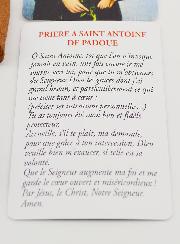 PRIERE A SAINT ANTOINE
DE PADOUE
O Saint Antoine, toi que l'on n'invoque
jamais en vain, une fois encore je me
tourne vers toi, pour que tu m'obtiennes
du Seigneur Dieu la grâce dont j'ai
grand besoin, et particulièrement ce qui
me tient tant à cœur :
(préciser ses intentions personnelles...)
Tu as toujours été mon bon et fidèle
protecteur.
Accueille, s'il te plaît, ma demande,
pour que grâce à ton intercession, Dieu
veuille bien m'exaucer, si telle est sa
volonté.
Que le Seigneur augmente ma foi et me
garde le cœur ouvert et miséricordieux !
Par Jésus, le Christ, Notre Seigneur
Amen.